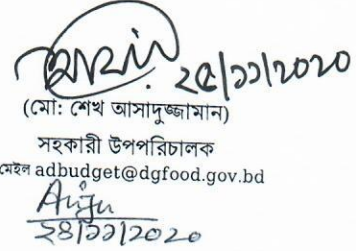 ২৫/১১/২০২০
(মো: শেখ আসাদুজ্জামান)
সহকারী উপপরিচালক
মেইল adbudget@dgfood.gov.bd
Anju
২৪/১১/২০২০